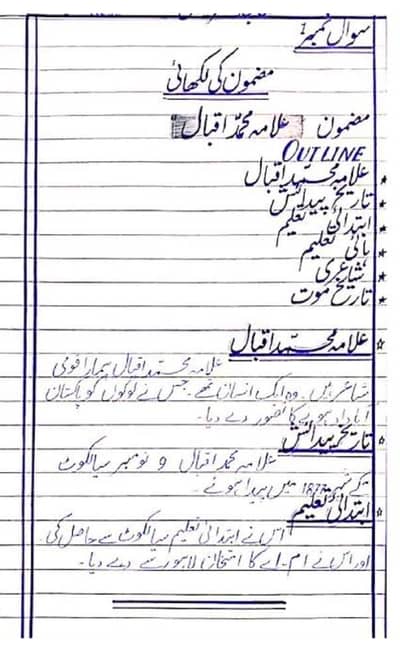 سوال نمبر 1
مضمون کی لکھائی
مضمون علامہ محمد اقبال
OUTLINE
علامہ محمد اقبال
تاریخ پیدائش
ابتدائی تعلیم
ہائی تعلیم
شاعری
تاریخ موت
علامہ محمد اقبال
علامہ محمد اقبال ہمارا قومی
شاعر ہیں۔ وہ ایک انسان تھے۔ جس نے لوگوں کو پاکستان
کا تصور دے دیا۔
تاریخ پیدائش
علامہ محمد اقبال 9 نومبر سیالکوٹ
کے شہر 1877 میں پیدا ہوئے۔
ابتدائی تعلیم
اس نے ابتدائی تعلیم سیالکوٹ سے حاصل کی
اور اس نے ام۔اے کا امتحان لاہور سے دے دیا۔